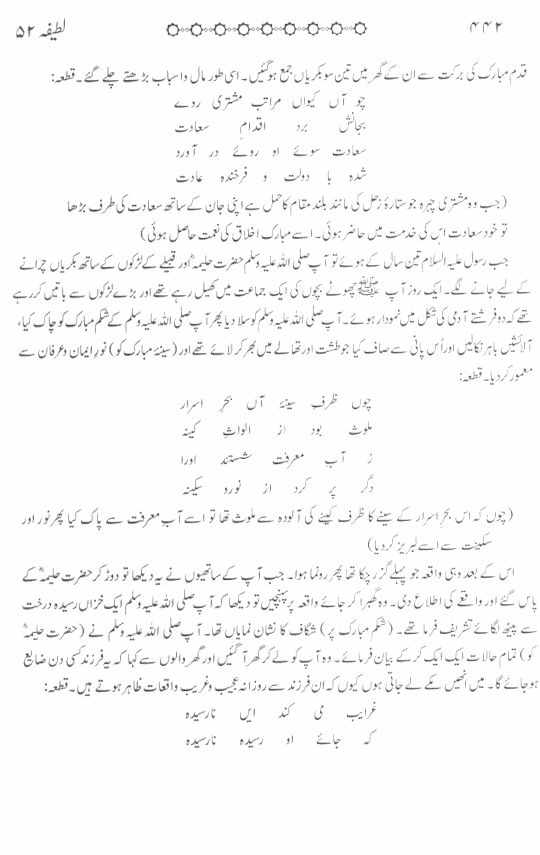 ۴۴۲ لطیفہ ۵۲
قدم مبارک کی برکت سے ان کے گھر میں تین سو بکریاں جمع ہوگئیں۔ اسی طور مال و اسباب بڑھتے چلے گئے۔ قطعہ:
چو آں کیواں مراتب مشتری روے
بجانش برد اقدامِ سعادت
سعادت سوئے او روئے در آورد
شدہ با دولت و فرخندہ عادت
(جب وہ مشتری چہرہ جو ستارۂ زحل کی مانند بلند مقام کا حمل ہے اپنی جان کے ساتھ سعادت کی طرف بڑھا
تو خود سعادت اس کی خدمت میں حاضر ہوئی۔ اسے مبارک اخلاق کی نعمت حاصل ہوئی)
جب رسول علیہ السلام تین سال کے ہوئے تو آپ صلی اللہ علیہ وسلم حضرت حلیمہؓ اور قبیلے کے لڑکوں کے ساتھ بکریاں چرانے
کے لیے جانے لگے۔ ایک روز آپ ﷺ چھوٹے بچوں کی ایک جماعت میں کھیل رہے تھے اور بڑے لڑکوں سے باتیں کر رہے
تھے کہ دو فرشتے آدمی کی شکل میں نمودار ہوئے۔ آپ صلی اللہ علیہ وسلم کو سلا دیا پھر آپ صلی اللہ علیہ وسلم کے شکم مبارک کو چاک کیا،
آلائشیں باہر نکالیں اور اُس پانی سے صاف کیا جو طشت اور تھالے میں بھر کر لائے تھے اور (سینۂ مبارک کو) نورِ ایمان و عرفان سے
معمور کر دیا۔ قطعہ:
چوں ظرفِ سینۂ آں بحرِ اسرار
ملوث بود از الواثِ کینہ
ز آبِ معرفت شستند اورا
دگر پر کرد از نورد سکینہ
(چوں کہ اس بحرِ اسرار کے سینے کا ظرف کینے کی آلودہ سے ملوث تھا تو اسے آبِ معرفت سے پاک کیا پھر نور اور
سکینت سے اسے لبریز کر دیا)
اس کے بعد وہی واقعہ جو پہلے گزر چکا تھا پھر رونما ہوا۔ جب آپ کے ساتھیوں نے یہ دیکھا تو دوڑ کر حضرت حلیمہؓ کے
پاس گئے اور واقعے کی اطلاع دی۔ وہ گھبرا کر جائے واقعہ پر پہنچیں تو دیکھا کہ آپ صلی اللہ علیہ وسلم ایک خزاں رسیدہ درخت
سے پیٹھ لگائے تشریف فرما تھے۔ (شکم مبارک پر) شگاف کا نشان نمایاں تھا۔ آپ صلی اللہ علیہ وسلم نے (حضرت حلیمہؓ
کو) تمام حالات ایک ایک کرکے بیان فرمائے۔ وہ آپ کو لے کر گھر آ گئیں اور گھر والوں سے کہا کہ یہ فرزند کسی دن ضایع
ہو جائے گا۔ میں انھیں مکے لے جاتی ہوں کیوں کہ ان فرزند سے روزانہ عجیب و غریب واقعات ظاہر ہوتے ہیں۔ قطعہ:
غرایب می کند ایں نارسیدہ
کہ جائے او رسیدہ نارسیدہ